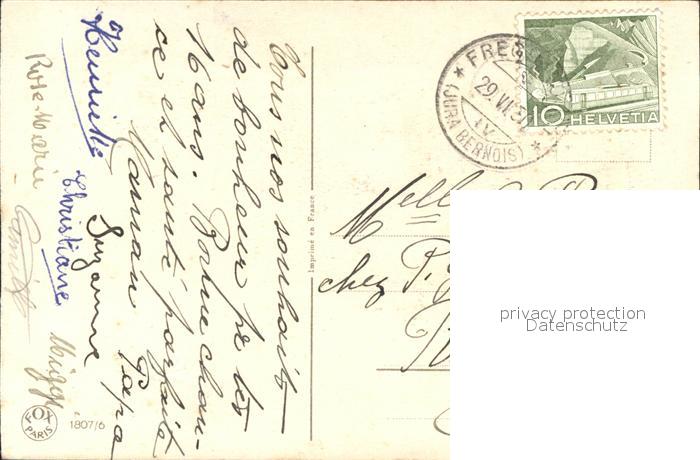 Tous nos souhaits
de bonheur pr tes
ans. Bonne chan-
ce et santé parfaite
Maman Papa
Suzanne
Christiane
Rose-Marie
Imprimé en France
FOX
PARIS
1807/6
* FRE
29.VI.5
(JURA BERNOIS) *
10 HELVETIA
Melle
chez P.
privacy protection
Datenschutz